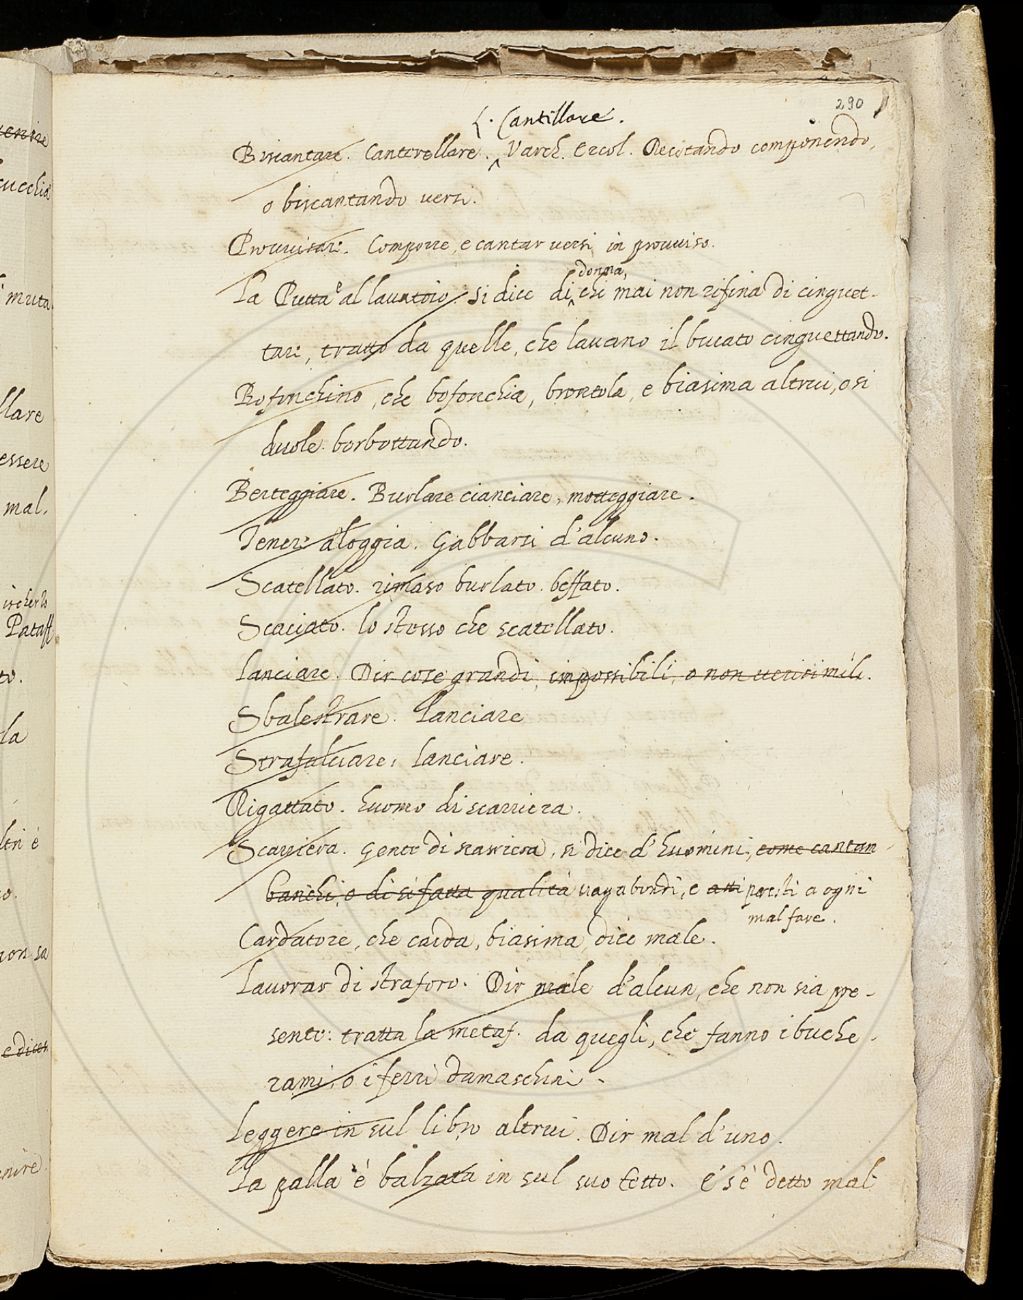 290
L. Cantillare.
Biscantare. Canterellare. Varch. Ercol. Recitando componendo,
o biscantando versi.
Provvisare. Comporre, e cantar versi, in provviso.
La Putta è al lavatoio, si dice di donna, chi mai non rifina di cinguet-
tare, tratto da quelle, che lavano il bucato cinguettando.
Bofonchino, che bofonchia, brontola, e biasima altrui, o si
duole borbottando.
Berteggiare. Burlare cianciare, motteggiare.
Tenere a loggia. Gabbarsi d'alcuno.
Scatellato. rimaso burlato. beffato.
Scaciato. lo stesso che scatellato.
Lanciare. Dir cose grandi, impossibili, o non verisimili.
Sbalestrare. Lanciare
Strafalciare, lanciare.
Rigattato. huomo di scarriera.
Scarriera. Gente di scarriera, si dice d'huomini, come cantan
banchi, o di sì fatta qualità vagabondi, e atti presti a ogni
mal fare.
Cardatore, che carda, biasima, dice male.
Lavorar di straforo. Dir male d'alcun, che non sia pre-
sente: tratta la metaf. da quegli, che fanno i buche-
rami, o i ferri damaschini.
Leggere in sul libro altrui. Dir mal d'uno.
La palla è balzata in sul suo tetto. e s'è detto mal